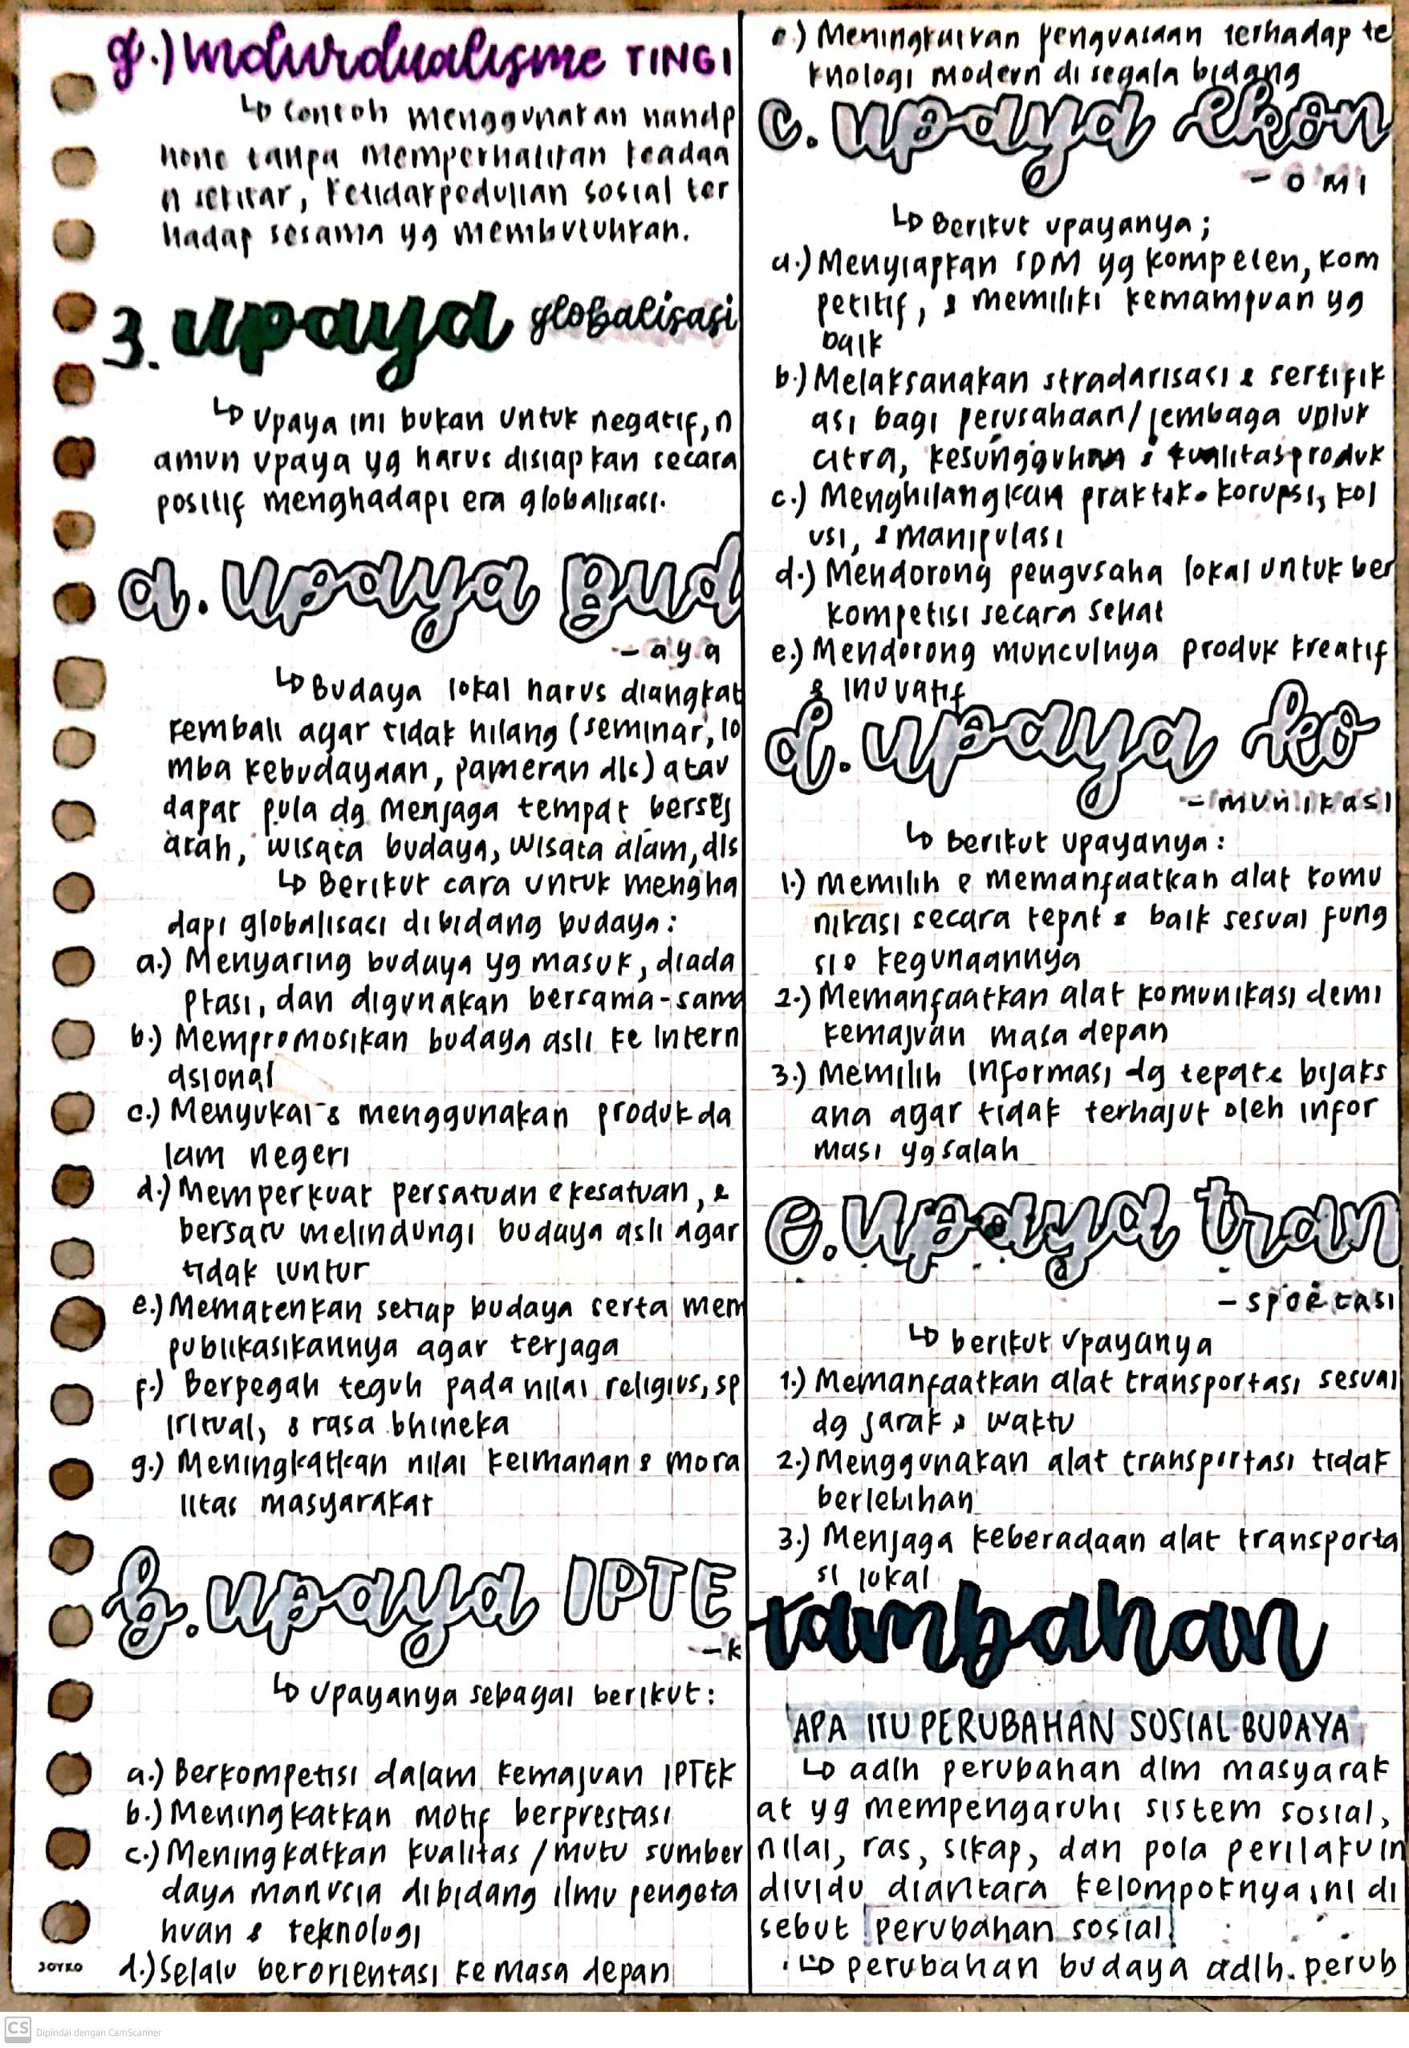 g.) Indivdualisme TINGI
↳ Contoh menggunakan handp
hone tanpa memperhatikan keadaa
n sekitar, ketidakpedulian sosial ter
hadap sesama yg membutuhkan.
3. upaya globalisasi
↳ Upaya ini bukan untuk negatif, n
amun upaya yg harus disiapkan secara
positif menghadapi era globalisasi.
a. upaya Bud
- aya
↳ Budaya lokal harus diangkat
kembali agar tidak hilang (seminar, lo
mba kebudayaan, pameran dls) atau
dapat pula dg menjaga tempat bersej
arah, wisata budaya, wisata alam, dls
↳ Berikut cara untuk mengha
dapi globalisasi dibidang budaya:
a.) Menyaring budaya yg masuk, diada
ptasi, dan digunakan bersama-sama
b.) Mempromosikan budaya asli ke Intern
asional
c.) Menyukai & menggunakan produk da
lam negeri
d.) Memperkuat persatuan & kesatuan, &
bersatu melindungi budaya asli agar
tidak luntur
e.) Mematenkan setiap budaya serta mem
publikasikannya agar terjaga
f.) Berpegah teguh pada nilai religius, sp
iritual, & rasa bhineka
g.) Meningkatkan nilai keimanan & mora
litas masyarakat
b. upaya IPTE
- K
↳ Upayanya sebagai berikut:
a.) Berkompetisi dalam kemajuan IPTEK
b.) Meningkatkan motif berprestasi
c.) Meningkatkan kualitas/mutu sumber
daya manusia dibidang ilmu pengeta
huan & teknologi
d.) Selalu berorientasi ke masa depan
JOYKO
e.) Meningkatkan penguasaan terhadap te
knologi modern di segala bidang
c. upaya ekon
- OMI
↳ Berikut upayanya;
a.) Menyiapkan SDM yg kompeten, kom
petitif, & memiliki kemampuan yg
baik
b.) Melaksanakan stradarisasi & sertifik
asi bagi perusahaan/lembaga untuk
citra, kesungguhan & kualitas produk
c.) Menghilangkan praktek korupsi, kol
usi, & manipulasi
d.) Mendorong pengusaha lokal untuk ber
kompetisi secara sehat
e.) Mendorong munculnya produk kreatif
& Inovatif
d. upaya ko
- munikasi
↳ berikut upayanya:
1.) Memilih & memanfaatkan alat komu
nikasi secara tepat & baik sesuai fung
si & kegunaannya
2.) Memanfaatkan alat komunikasi demi
kemajuan masa depan
3.) Memilih Informasi dg tepat & bijaks
ana agar tidak terhajut oleh infor
masi yg salah
e. upaya tran
- SPORTASI
↳ berikut upayanya
1.) Memanfaatkan alat transportasi sesuai
dg jarak & waktu
2.) Menggunakan alat transportasi tidak
berlebihan
3.) Menjaga keberadaan alat transporta
si lokal
tambahan
APA ITU PERUBAHAN SOSIAL BUDAYA
↳ adlh perubahan dlm masyarak
at yg mempengaruhi sistem sosial,
nilai, ras, sikap, dan pola perilaku in
dividu diantara kelompoknya, ini di
sebut perubahan sosial
↳ perubahan budaya adlh. perub
CS Dipindai dengan CamScanner